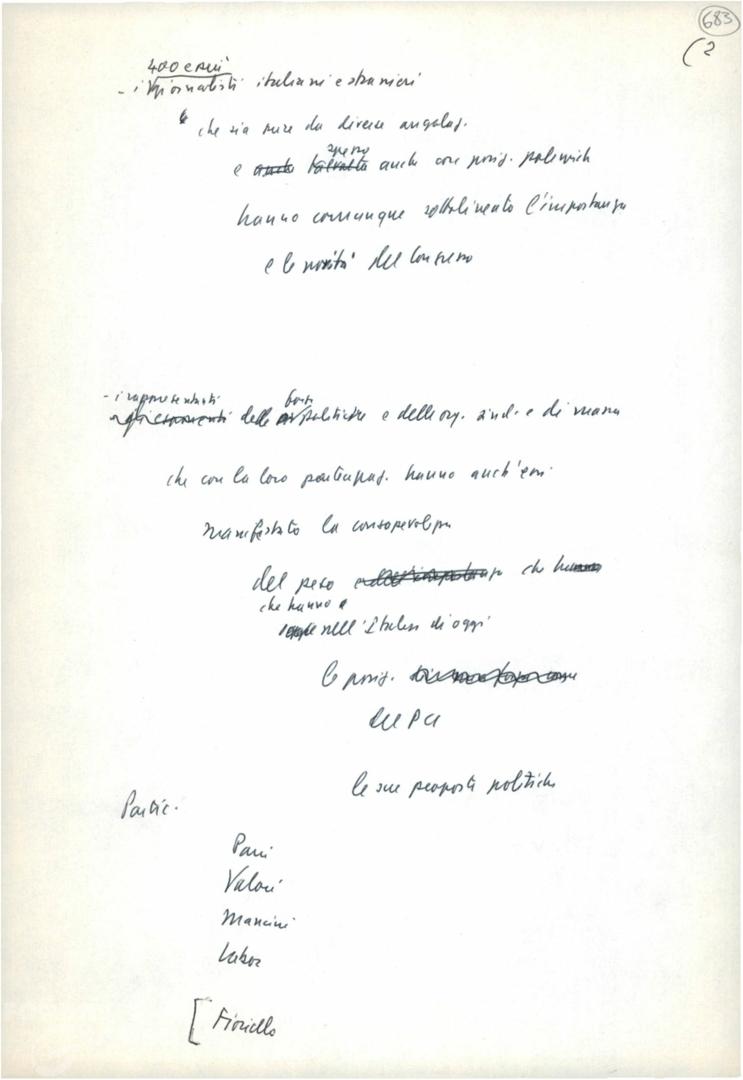 683
(2
400 e più
- i giornalisti italiani e stranieri
che sia pure da diverse angolaz.
spesso
e anche talvolta anche con posiz. polemich
hanno comunque sottolineato l'importanza
e la novità del Congresso
- i rappresentanti
forze
delle politiche e delle org. sind. e di massa
che con la loro partecipaz. hanno anch'essi
manifestato la consapevolezza
del peso e dell'importanza che hanno
che hanno
nell'Italia di oggi
le posiz.
del PCI
le sue proposte politiche
Partic.
Parri
Valori
Mancini
Labor
[ Fioriello